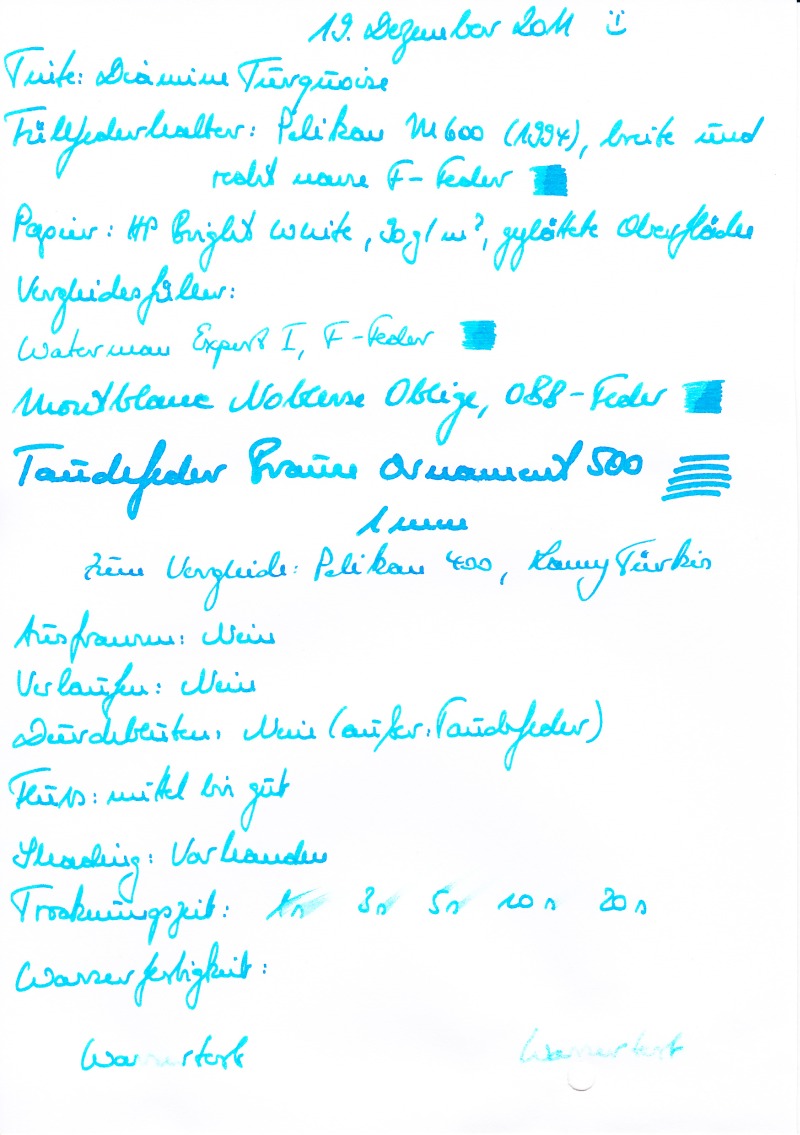 19. Dezember 2011
Tinte: Diamine Turquoise
Füllfederhalter: Pelikan M600 (1994), breite und
recht nasse F-Feder
Papier: HP Bright White, 90g/m², geglättete Oberfläche
Vergleichsfüller:
Waterman Expert I, F-Feder
Montblanc Noblesse Oblige, OBB-Feder
Tauchfeder Brause Ornament 500
1 mm
Zum Vergleich: Pelikan 400, Lamy Türkis
Ausfransen: Nein
Verlaufen: Nein
Durchbluten: Nein (außer: Tauchfeder)
Fluss: mittel bis gut
Shading: Vorhanden
Trocknungszeit: 1s 3s 5s 10s 20s
Wasserfestigkeit:
Wassertest Wassertest